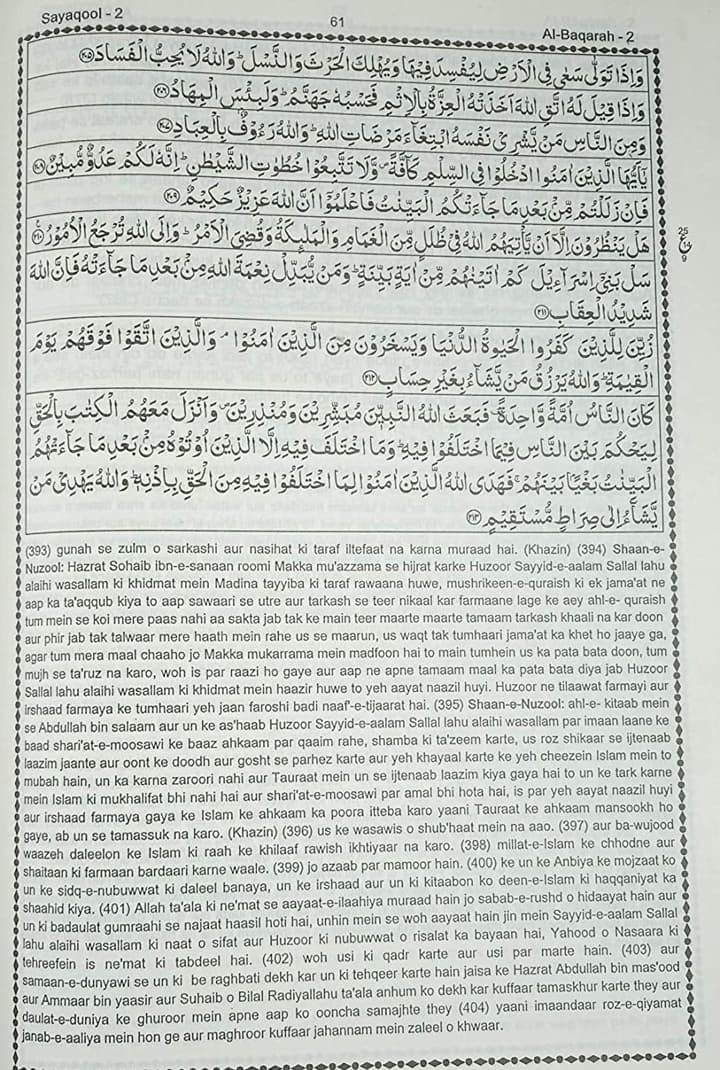 Sayaqool - 2
61
Al-Baqarah - 2
وَاِذَا تَوَلّٰى سَعٰى فِى الْاَرْضِ لِيُفْسِدَ فِيْهَا وَيُهْلِكَ الْحَرْثَ وَالنَّسْلَ ؕ وَاللّٰهُ لَا يُحِبُّ الْفَسَادَ ﴿۲۰۵﴾
وَاِذَا قِيْلَ لَهُ اتَّقِ اللّٰهَ اَخَذَتْهُ الْعِزَّةُ بِالْاِثْمِ فَحَسْبُهٗ جَهَنَّمُ ؕ وَلَبِئْسَ الْمِهَادُ ﴿۲۰۶﴾
وَمِنَ النَّاسِ مَنْ يَّشْرِىْ نَفْسَهُ ابْتِغَآءَ مَرْضَاتِ اللّٰهِ ؕ وَاللّٰهُ رَءُوْفٌۢ بِالْعِبَادِ ﴿۲۰۷﴾
يٰٓاَيُّهَا الَّذِيْنَ اٰمَنُوا ادْخُلُوْا فِى السِّلْمِ كَآفَّةً ۪ وَّلَا تَتَّبِعُوْا خُطُوٰتِ الشَّيْطٰنِ ؕ اِنَّهٗ لَكُمْ عَدُوٌّ مُّبِيْنٌ ﴿۲۰۸﴾
فَاِنْ زَلَلْتُمْ مِّنْۢ بَعْدِ مَا جَآءَتْكُمُ الْبَيِّنٰتُ فَاعْلَمُوْٓا اَنَّ اللّٰهَ عَزِيْزٌ حَكِيْمٌ ﴿۲۰۹﴾
هَلْ يَنْظُرُوْنَ اِلَّآ اَنْ يَّاْتِيَهُمُ اللّٰهُ فِىْ ظُلَلٍ مِّنَ الْغَمَامِ وَالْمَلٰٓئِكَةُ وَقُضِىَ الْاَمْرُ ؕ وَاِلَى اللّٰهِ تُرْجَعُ الْاُمُوْرُ ﴿۲۱۰﴾
25
ع
9
سَلْ بَنِىْٓ اِسْرَآءِيْلَ كَمْ اٰتَيْنٰهُمْ مِّنْ اٰيَةٍۢ بَيِّنَةٍ ؕ وَمَنْ يُّبَدِّلْ نِعْمَةَ اللّٰهِ مِنْۢ بَعْدِ مَا جَآءَتْهُ فَاِنَّ اللّٰهَ
شَدِيْدُ الْعِقَابِ ﴿۲۱۱﴾
زُيِّنَ لِلَّذِيْنَ كَفَرُوا الْحَيٰوةُ الدُّنْيَا وَيَسْخَرُوْنَ مِنَ الَّذِيْنَ اٰمَنُوْا ۘ وَالَّذِيْنَ اتَّقَوْا فَوْقَهُمْ يَوْمَ
الْقِيٰمَةِ ؕ وَاللّٰهُ يَرْزُقُ مَنْ يَّشَآءُ بِغَيْرِ حِسَابٍ ﴿۲۱۲﴾
كَانَ النَّاسُ اُمَّةً وَّاحِدَةً ۫ فَبَعَثَ اللّٰهُ النَّبِيّٖنَ مُبَشِّرِيْنَ وَمُنْذِرِيْنَ ۪ وَاَنْزَلَ مَعَهُمُ الْكِتٰبَ بِالْحَقِّ
لِيَحْكُمَ بَيْنَ النَّاسِ فِيْمَا اخْتَلَفُوْا فِيْهِ ؕ وَمَا اخْتَلَفَ فِيْهِ اِلَّا الَّذِيْنَ اُوْتُوْهُ مِنْۢ بَعْدِ مَا جَآءَتْهُمُ
الْبَيِّنٰتُ بَغْيًۢا بَيْنَهُمْ ۚ فَهَدَى اللّٰهُ الَّذِيْنَ اٰمَنُوْا لِمَا اخْتَلَفُوْا فِيْهِ مِنَ الْحَقِّ بِاِذْنِهٖ ؕ وَاللّٰهُ يَهْدِىْ مَنْ
يَّشَآءُ اِلٰى صِرَاطٍ مُّسْتَقِيْمٍ ﴿۲۱۳﴾
(393) gunah se zulm o sarkashi aur nasihat ki taraf iltefaat na karna muraad hai. (Khazin) (394) Shaan-e-
Nuzool: Hazrat Sohaib ibn-e-sanaan roomi Makka mu'azzama se hijrat karke Huzoor Sayyid-e-aalam Sallal lahu
alaihi wasallam ki khidmat mein Madina tayyiba ki taraf rawaana huwe, mushrikeen-e-quraish ki ek jama'at ne
aap ka ta'aqqub kiya to aap sawaari se utre aur tarkash se teer nikaal kar farmaane lage ke aey ahl-e- quraish
tum mein se koi mere paas nahi aa sakta jab tak ke main teer maarte maarte tamaam tarkash khaali na kar doon
aur phir jab tak talwaar mere haath mein rahe us se maarun, us waqt tak tumhaari jama'at ka khet ho jaaye ga,
agar tum mera maal chaaho jo Makka mukarrama mein madfoon hai to main tumhein us ka pata bata doon, tum
mujh se ta'ruz na karo, woh is par raazi ho gaye aur aap ne apne tamaam maal ka pata bata diya jab Huzoor
Sallal lahu alaihi wasallam ki khidmat mein haazir huwe to yeh aayat naazil huyi. Huzoor ne tilaawat farmayi aur
irshaad farmaya ke tumhaari yeh jaan faroshi badi naaf'-e-tijaarat hai. (395) Shaan-e-Nuzool: ahl-e- kitaab mein
se Abdullah bin salaam aur un ke as'haab Huzoor Sayyid-e-aalam Sallal lahu alaihi wasallam par imaan laane ke
baad shari'at-e-moosawi ke baaz ahkaam par qaaim rahe, shamba ki ta'zeem karte, us roz shikaar se ijtenaab
laazim jaante aur oont ke doodh aur gosht se parhez karte aur yeh khayaal karte ke yeh cheezein Islam mein to
mubah hain, un ka karna zaroori nahi aur Tauraat mein un se ijtenaab laazim kiya gaya hai to un ke tark karne
mein Islam ki mukhalifat bhi nahi hai aur shari'at-e-moosawi par amal bhi hota hai, is par yeh aayat naazil huyi
aur irshaad farmaya gaya ke Islam ke ahkaam ka poora itteba karo yaani Tauraat ke ahkaam mansookh ho
gaye, ab un se tamassuk na karo. (Khazin) (396) us ke wasawis o shub'haat mein na aao. (397) aur ba-wujood
waazeh daleelon ke Islam ki raah ke khilaaf rawish ikhtiyaar na karo. (398) millat-e-Islam ke chhodne aur
shaitaan ki farmaan bardaari karne waale. (399) jo azaab par mamoor hain. (400) ke un ke Anbiya ke mojzaat ko
un ke sidq-e-nubuwwat ki daleel banaya, un ke irshaad aur un ki kitaabon ko deen-e-Islam ki haqqaniyat ka
shaahid kiya. (401) Allah ta'ala ki ne'mat se aayaat-e-ilaahiya muraad hain jo sabab-e-rushd o hidaayat hain aur
un ki badaulat gumraahi se najaat haasil hoti hai, unhin mein se woh aayaat hain jin mein Sayyid-e-aalam Sallal
lahu alaihi wasallam ki naat o sifat aur Huzoor ki nubuwwat o risalat ka bayaan hai, Yahood o Nasaara ki
tehreefein is ne'mat ki tabdeel hai. (402) woh usi ki qadr karte aur usi par marte hain. (403) aur
samaan-e-dunyawi se un ki be raghbati dekh kar un ki tehqeer karte hain jaisa ke Hazrat Abdullah bin mas'ood
aur Ammaar bin yaasir aur Suhaib o Bilal Radiyallahu ta'ala anhum ko dekh kar kuffaar tamaskhur karte they aur
daulat-e-duniya ke ghuroor mein apne aap ko ooncha samajhte they (404) yaani imaandaar roz-e-qiyamat
janab-e-aaliya mein hon ge aur maghroor kuffaar jahannam mein zaleel o khwaar.